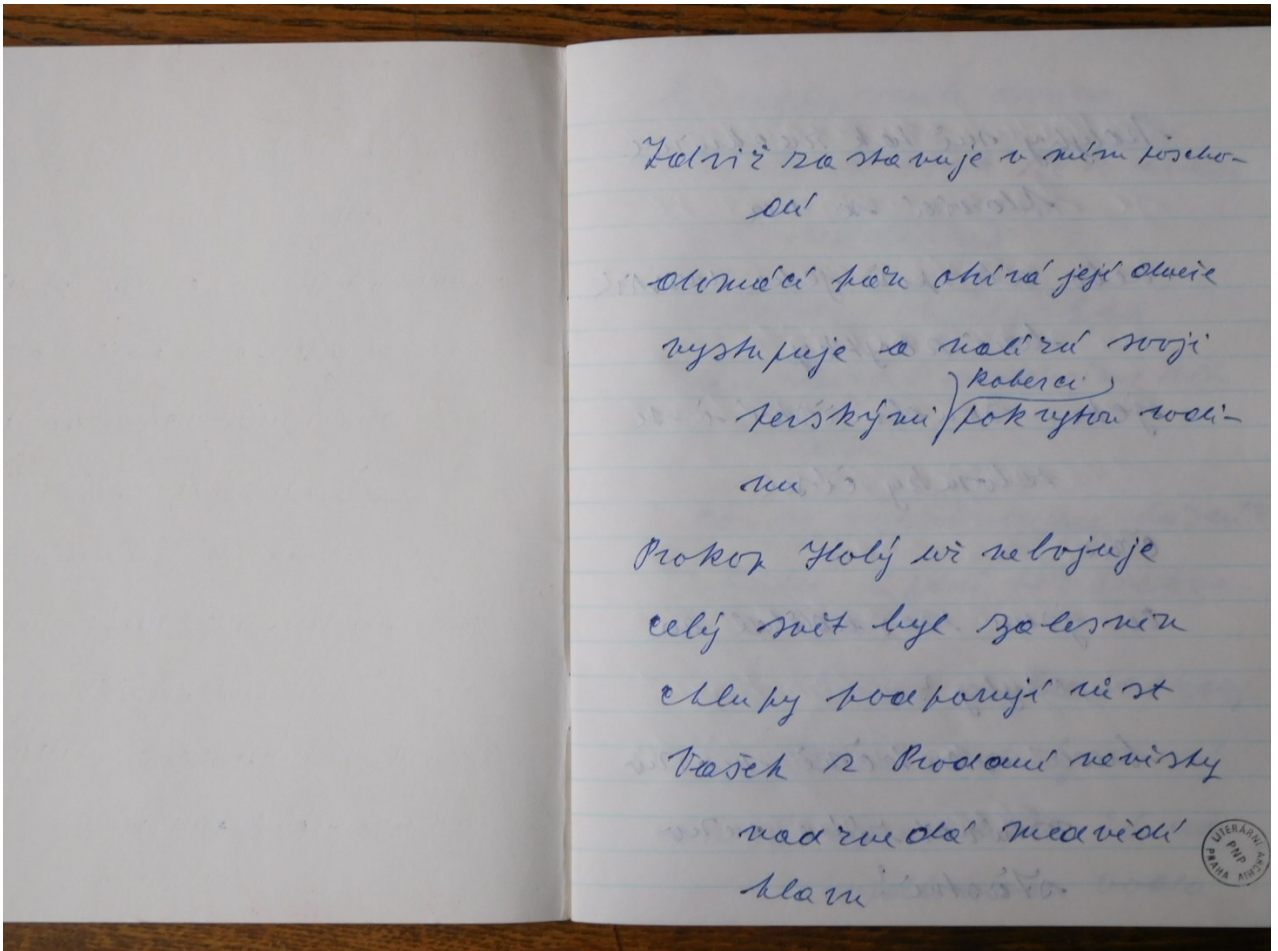 Zdviž zastavuje v mém poscho-
dí
domácí pán otvírá její dveře
vystupuje a nalézá svoji
koberci
perskými pokrytou rodi-
nu
Prokop Holý už nebojuje
celý svět byl zalesněn
chlupy podporují růst
Vašek z Prodané nevěsty
nadzvedá medvědí
hlavu
LITERÁRNÍ ARCHIV
PNP
PRAHA